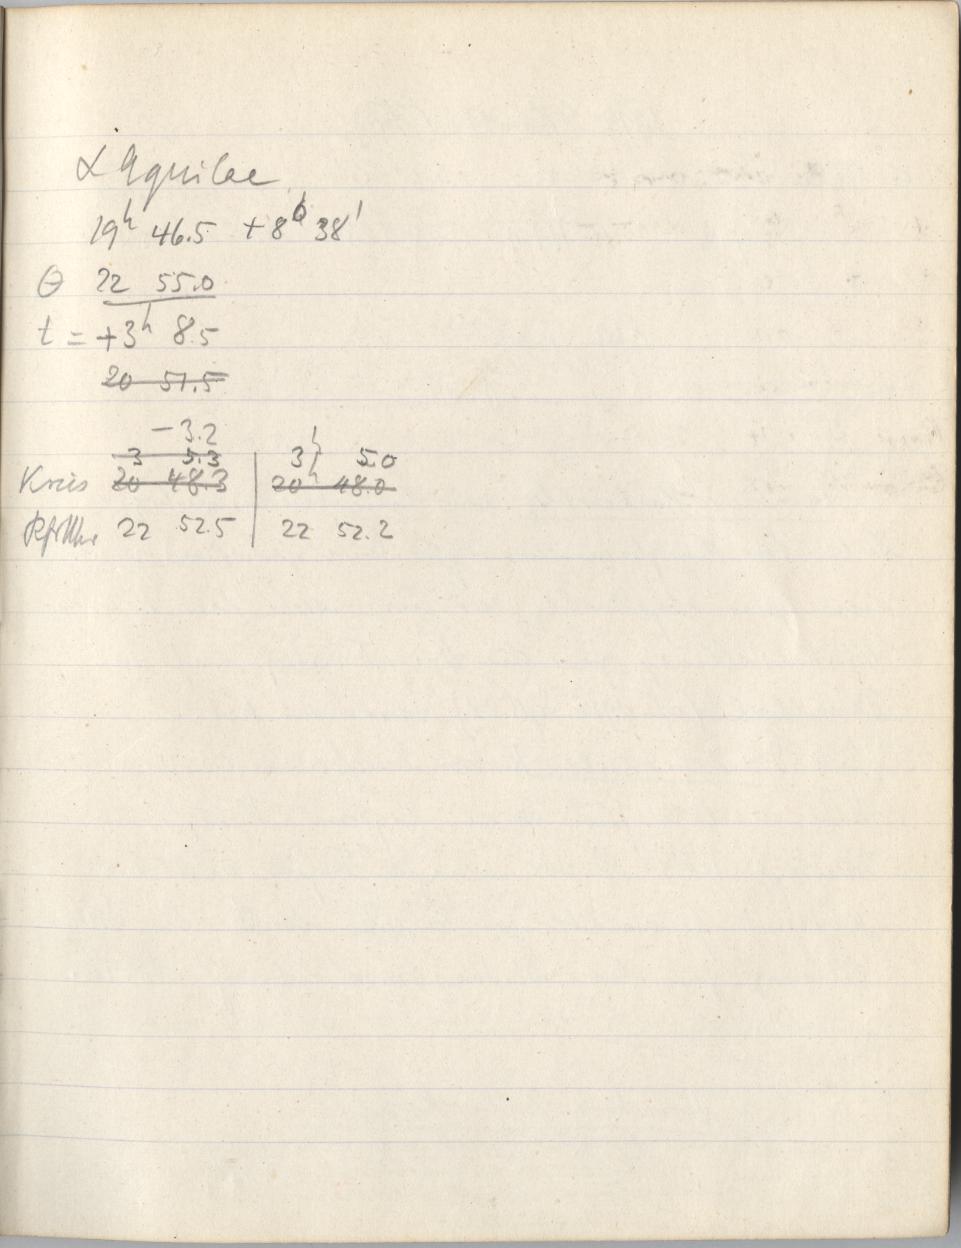 α Aquilae
19h 46.5 +8° 38'
θ 22 55.0
t = +3h 8.5
20 51.5
-3.2
3 5.3 3h 5.0
Kreis 20 48.3 20h 48.0
22 52.5 22 52.2